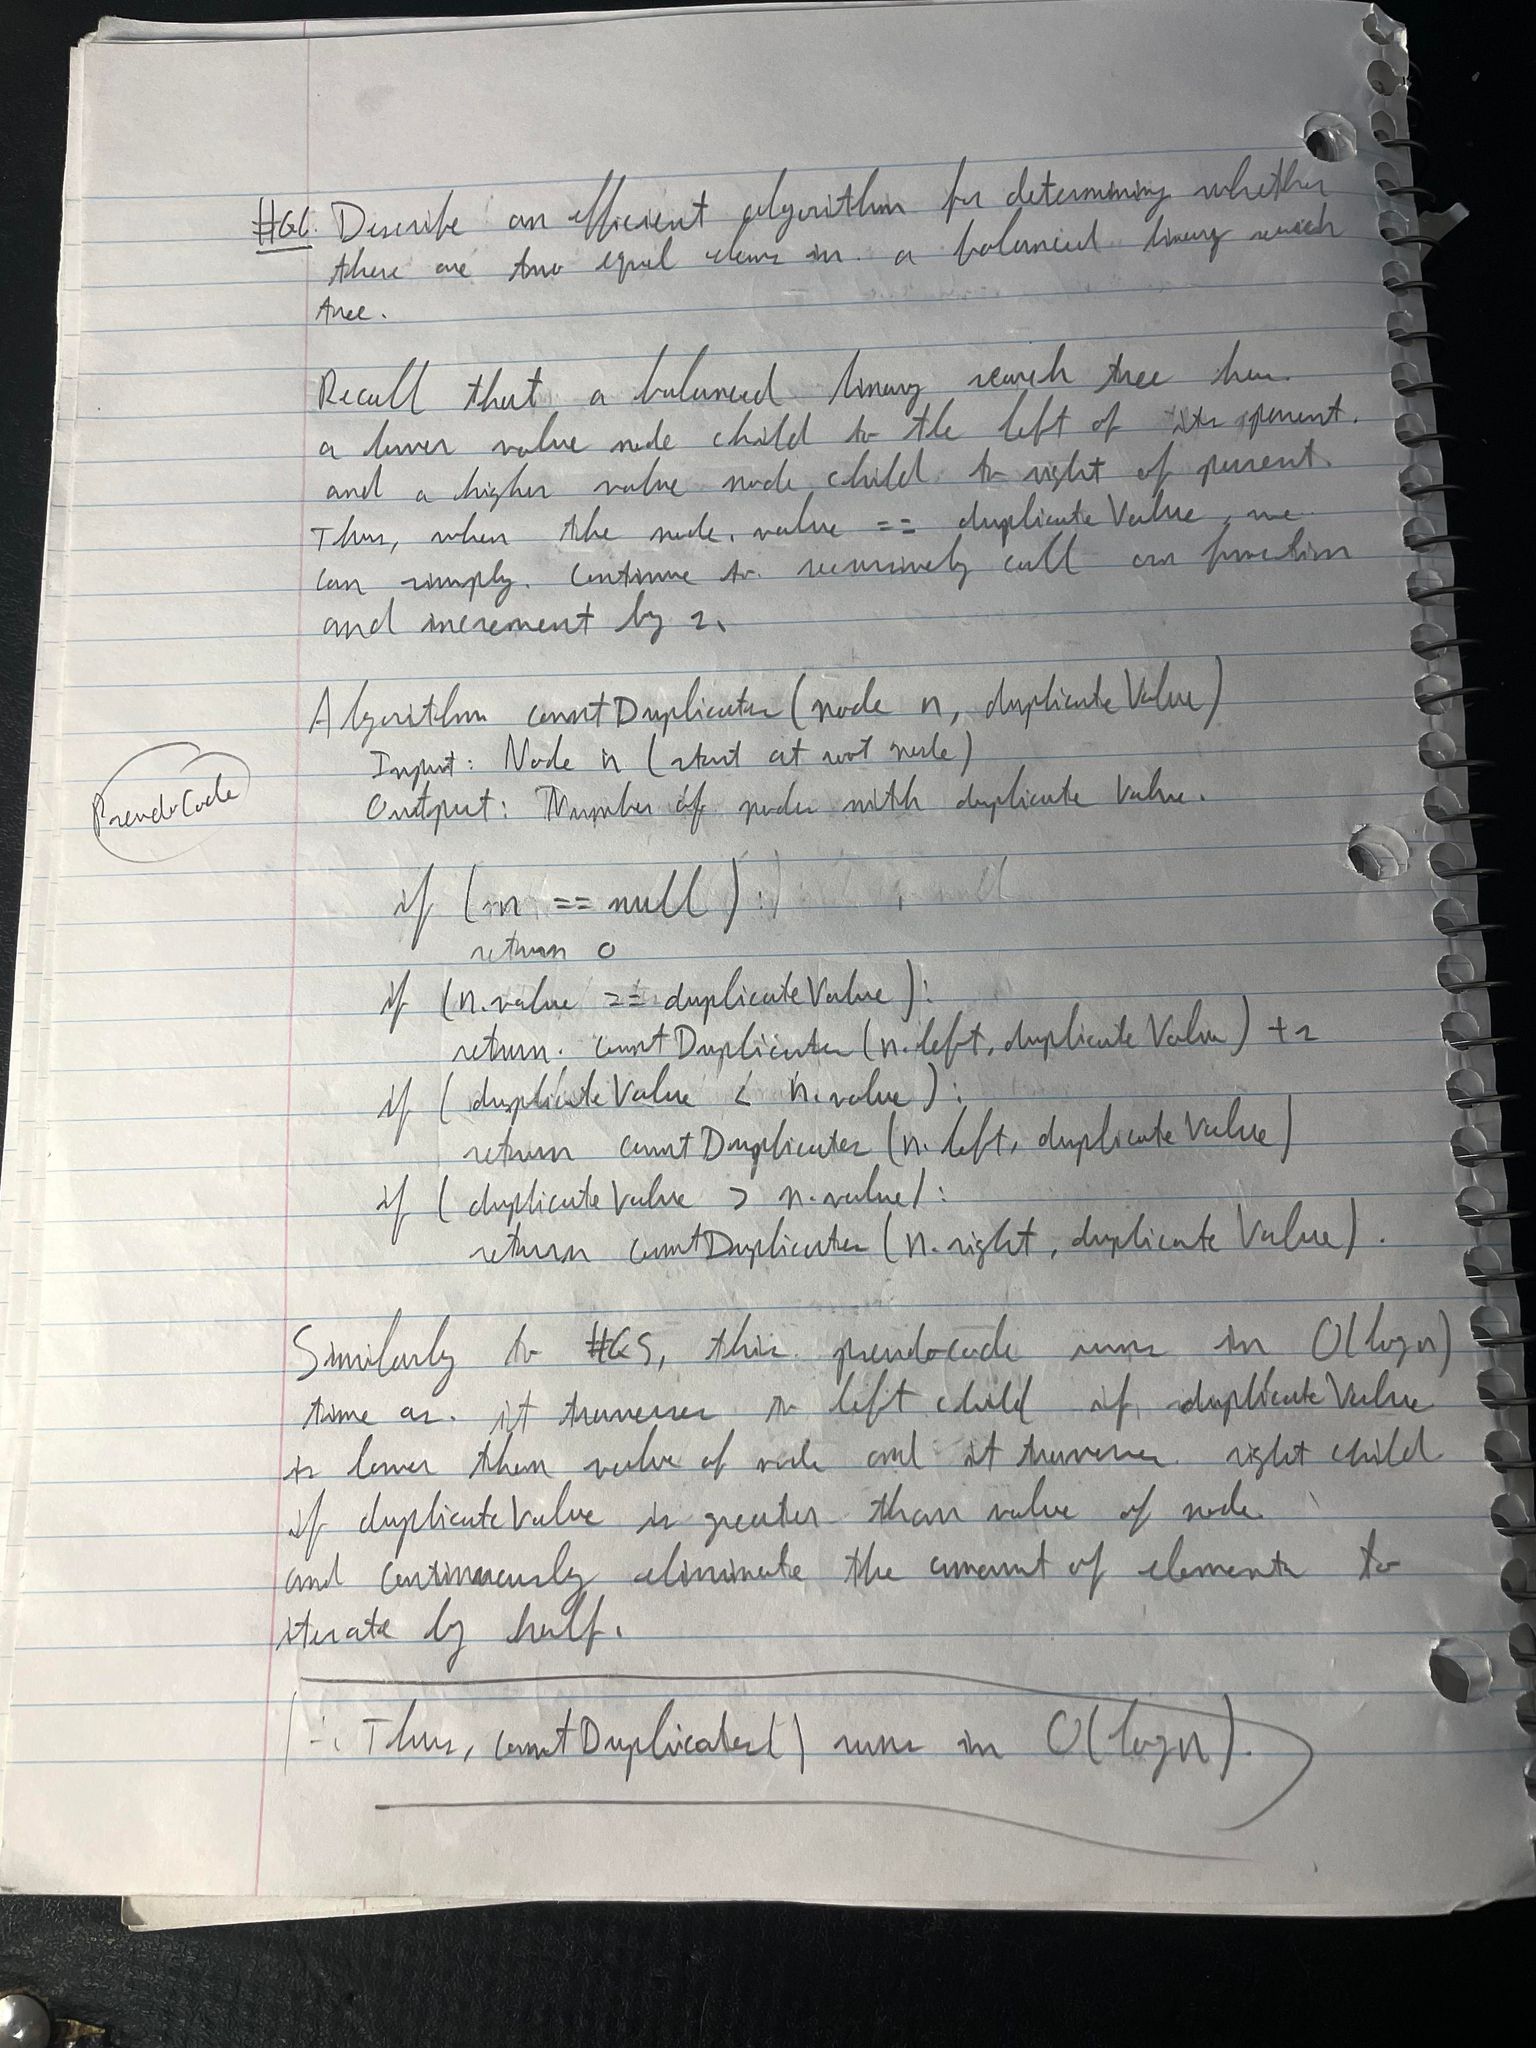 #G6. Describe an efficient algorithm for determining whether
there are two equal elems in a balanced binary search
tree.
Recall that a balanced binary search tree has
a lower value node child to the left of its parent.
and a higher value node child to right of parent.
Thus, when the node.value == duplicateValue, we
can simply continue to recursively call our function
and increment by 1.
Algorithm countDuplicates(node n, duplicateValue)
Input: Node n (start at root node)
PseudoCode
Output: Number of nodes with duplicate value.
if (n == null):
return 0
if (n.value == duplicateValue):
return countDuplicates(n.left, duplicateValue) +1
if (duplicateValue < n.value):
return countDuplicates(n.left, duplicateValue)
if (duplicateValue > n.value):
return countDuplicates(n.right, duplicateValue).
Similarly to #G5, this pseudocode runs in O(logn)
time as it traverses to left child if duplicateValue
is lower than value of node and it traverses right child
if duplicateValue is greater than value of node.
and continuously eliminate the amount of elements to
iterate by half.
∴ Thus, countDuplicates() runs in O(logn).